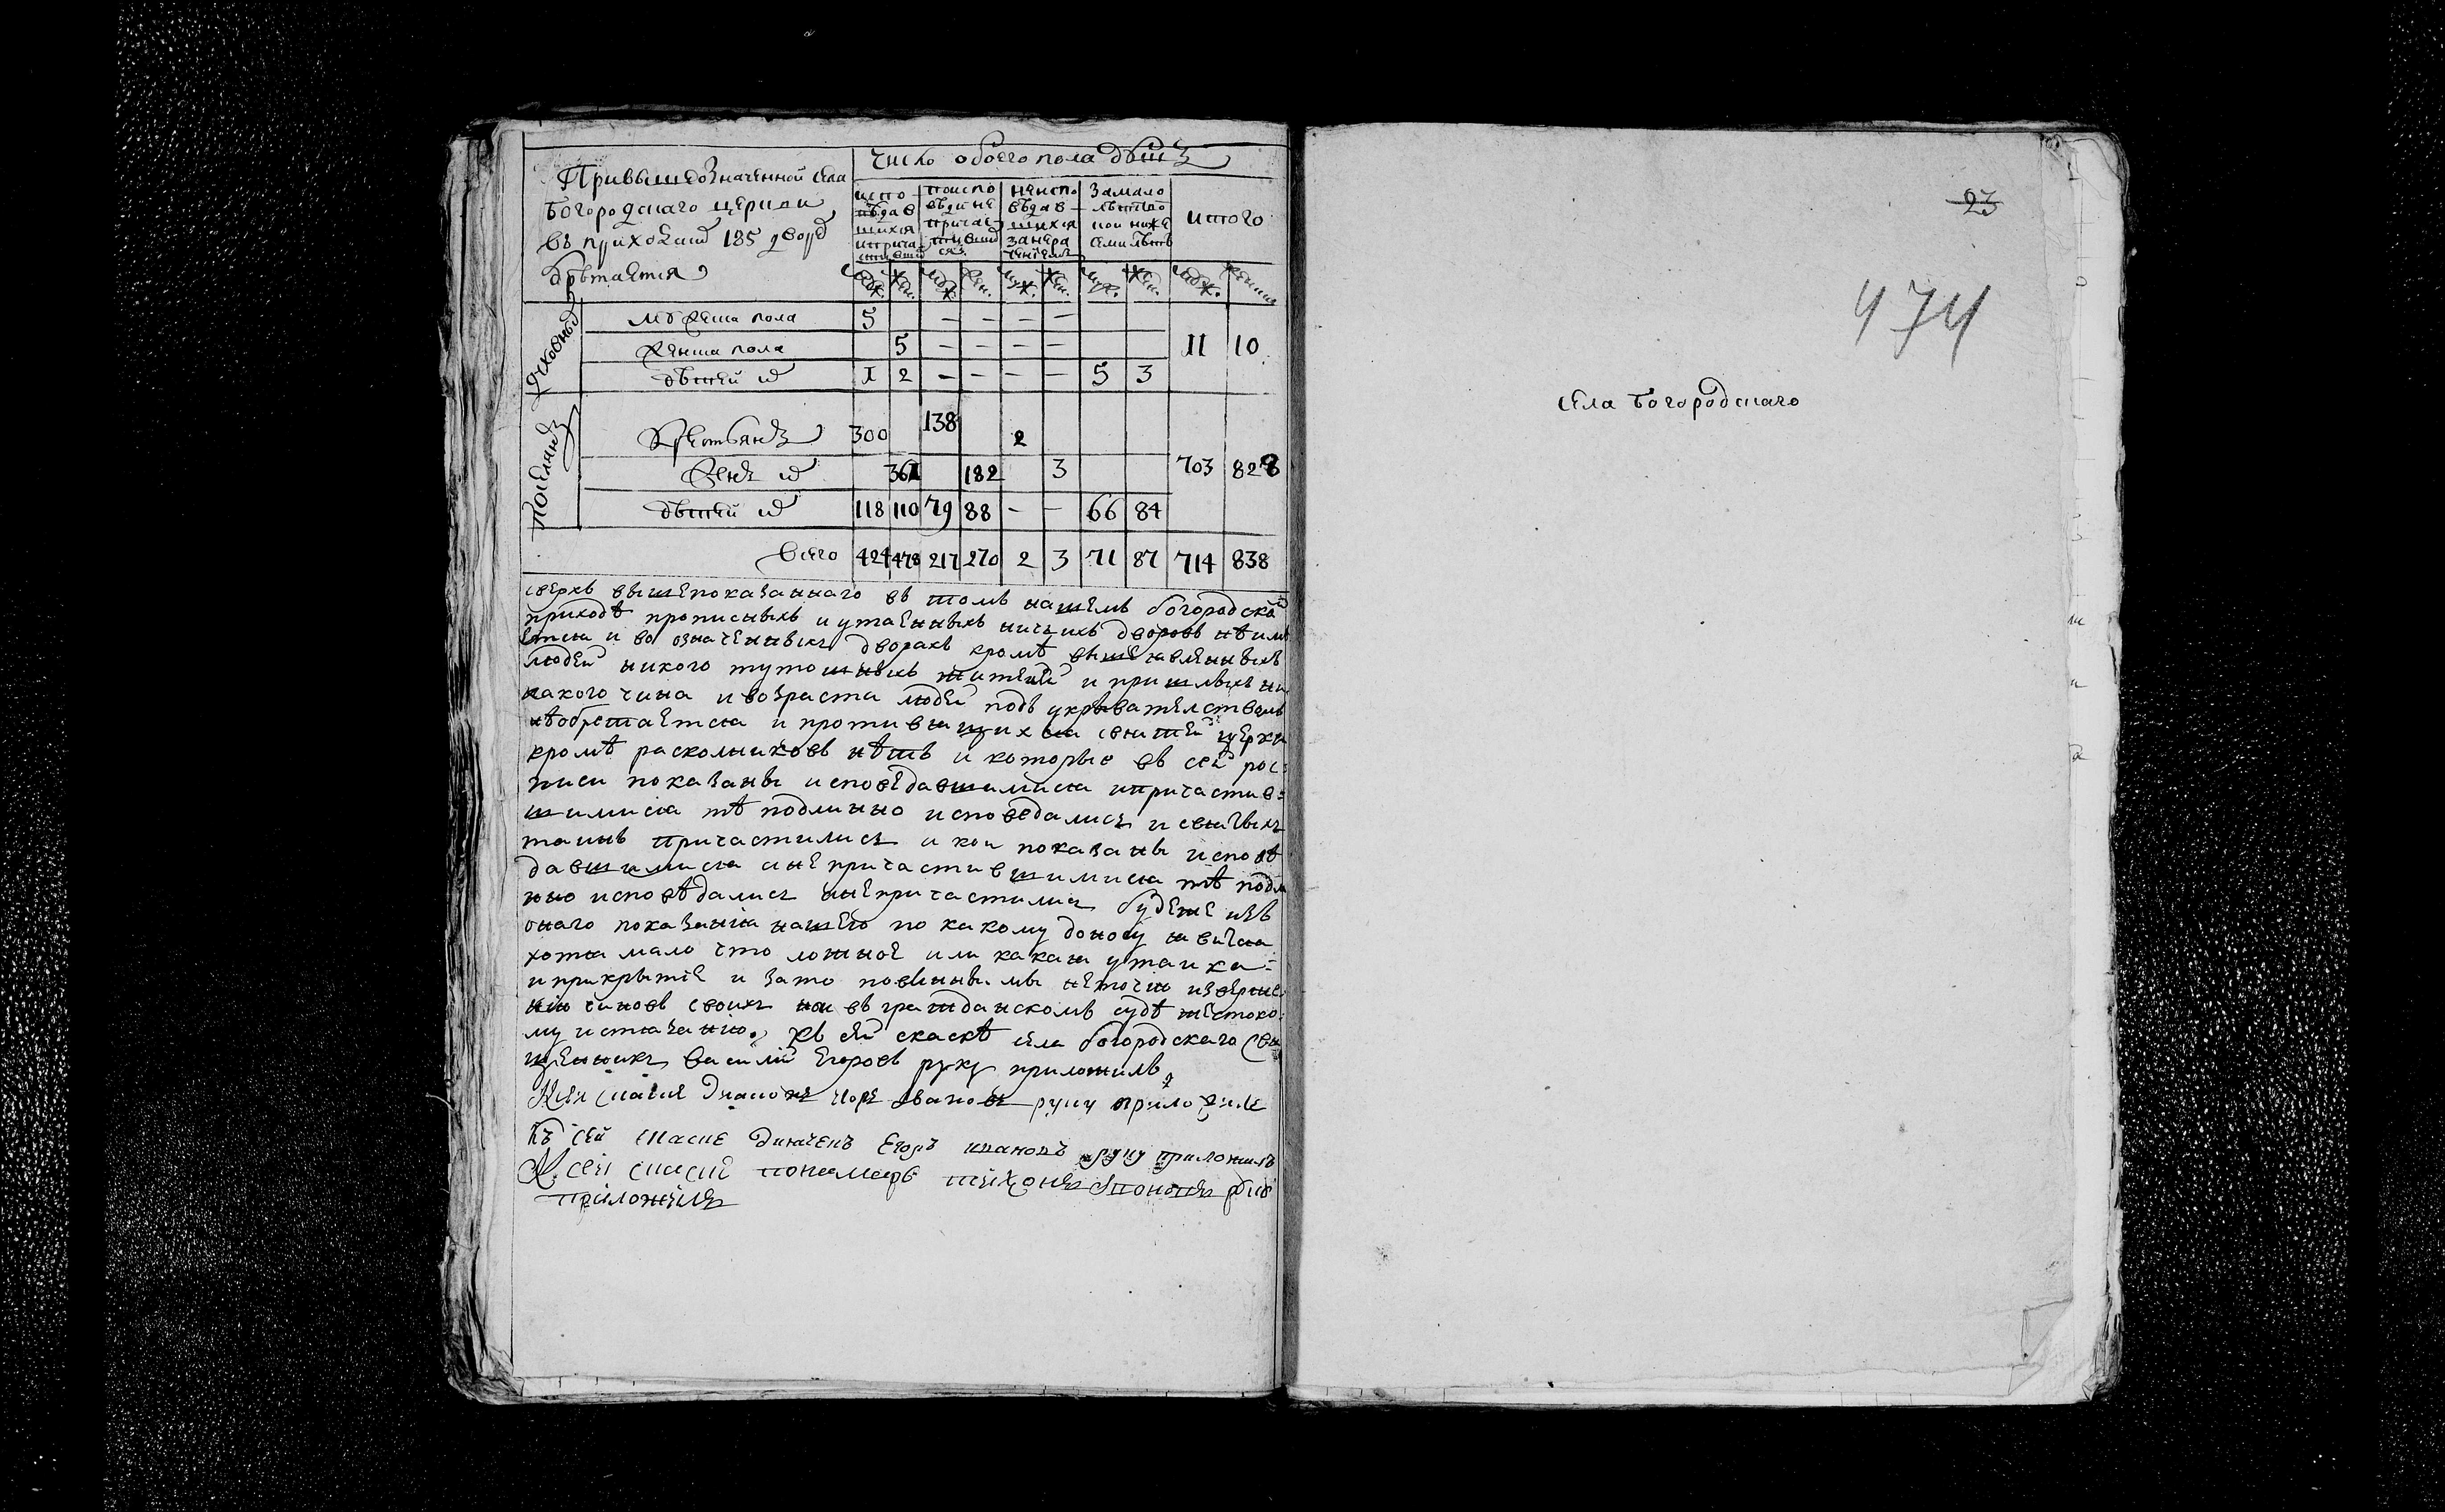 При вышеозначенной села
Богородского церкви
въ приходѣ 185 дворѣ
обрѣтается
число обоего пола душъ
испо
вѣдав
шихся
и прича
стивши
по испо
вѣди не
причас
тивши
ся
неиспо
вѣдав
шихся
за нера
ченіемъ
за мало
лѣтство
кои ниже
семи лѣтъ
итого
муж. жен. муж. жен. муж. жен. муж. жен. муж. женска
духовныхъ
мужеска пола 5 — — — —
женска пола 5 — — — — 11 10
дѣтей их 1 2 — — — — 5 3
поселянъ
крестьянъ 300 138 2
женъ их 361 182 3 703 828
дѣтей их 118 110 79 88 — — 66 84
всего 424 478 217 270 2 3 71 87 714 838
сверхъ вышепоказаннаго въ томъ нашемъ богородской
приходѣ прописныхъ и утаенныхъ ничьихъ дворовъ не им
еется и во означенныхъ дворахъ кромѣ вышеявленныхъ
людей никого тутошныхъ жителей и пришлыхъ ни
какого чина и возраста людей подъ укрывателствомъ
необретается и противящихся святей церкви
кромѣ расколниковъ нѣтъ и которые въ сей рос
писи показаны исповедавшимися и причастив=
шимися тѣ подлинно исповедались и святыхъ
таинъ причастились и кои показаны исповѣ
давшимися и непричастившимися тѣ подли
нно исповѣдались и непричастились будеже изъ
онаго показанія нашего по какому доносу явится
хотя мало что ложное или какая утаика=
и прикрытіе и зато повинны мы неточію извержe
нію чиновъ своихъ но и въ гражданскомъ судѣ жестоко=
му истязанію. къ сей скаскѣ села богородскаго свя
щенникъ Василий Егоровъ руку приложилъ
К сеи скаске Дьяконъ Игоръ Ивановъ руку приложилъ
Къ сей скаске дьячекъ Егоръ ивановъ руку приложилъ
К сеи скаски пономаръ тихонъ руку
приложилъ
23
474
села Богородскаго